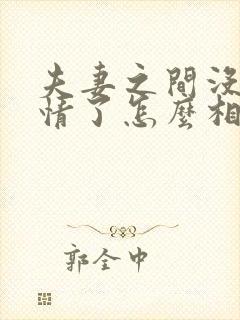 夫妻之間沒
情了怎麼相
郭全中